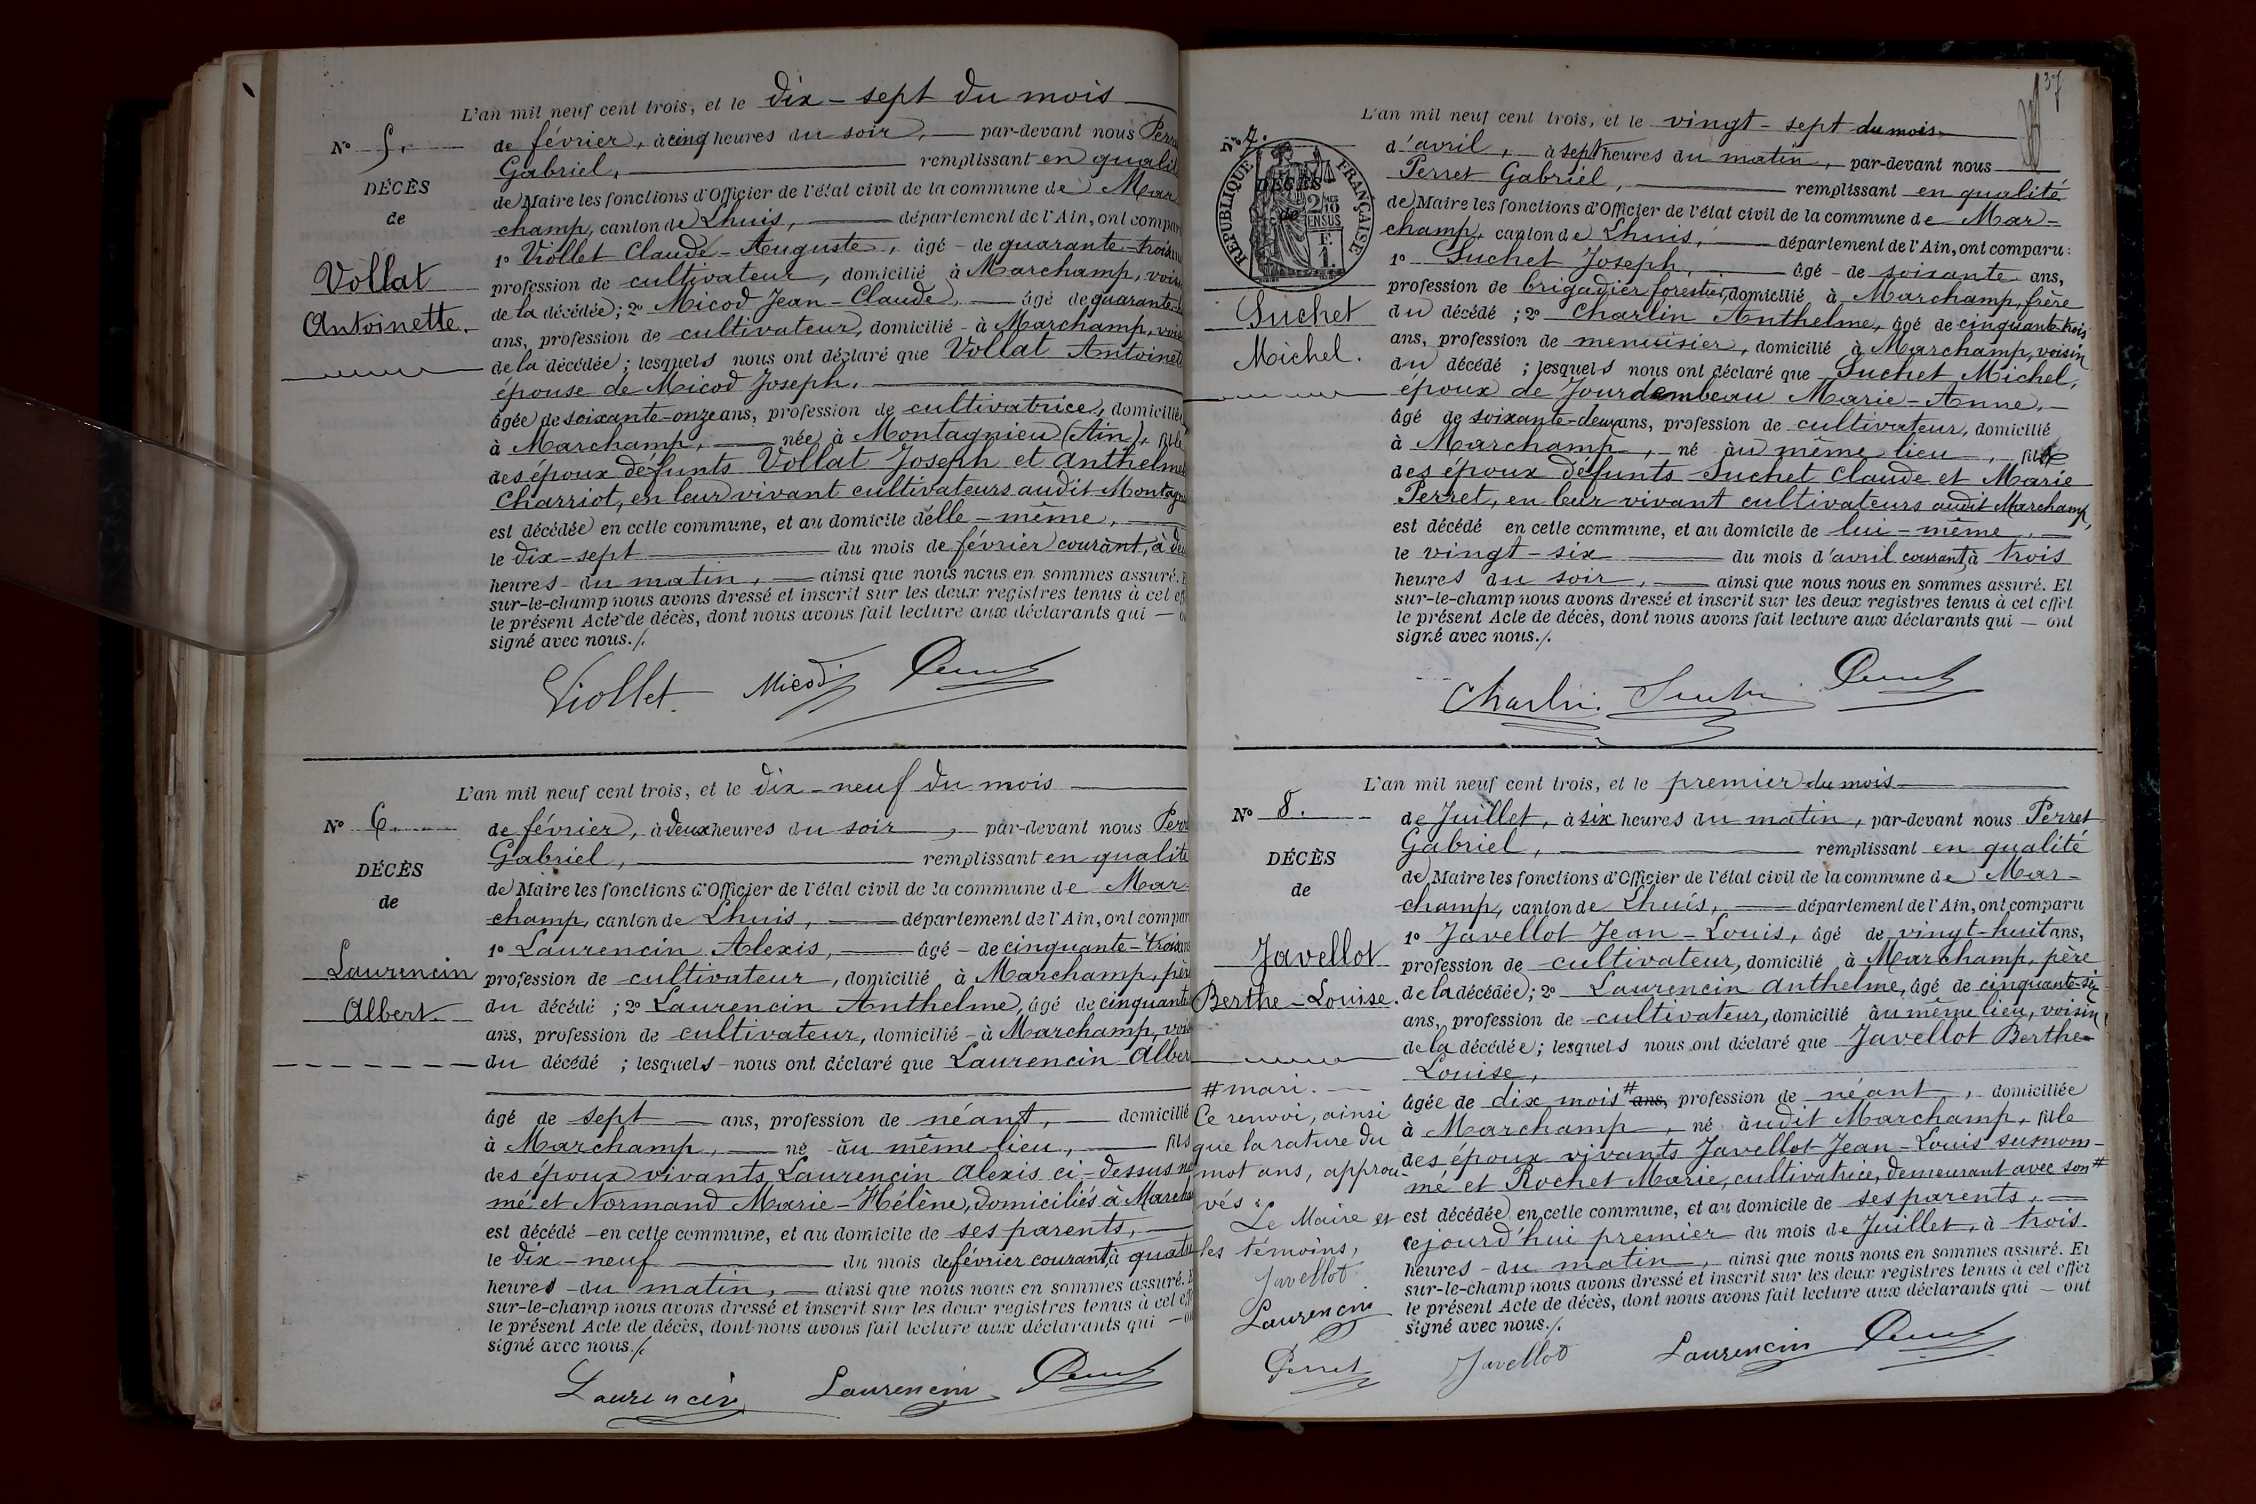 L'an mil neuf cent trois, et le dix-sept du mois
No 5.
de février, à cinq heures du soir, par-devant nous Perr
Gabriel, remplissant en qualité
DÉCÈS
de Maire les fonctions d'Officier de l'état civil de la commune de Mar
de
champ, canton de Lhuis, département de l'Ain, ont compar
Vollat
Antoinette.
1o Viollet Claude-Auguste, âgé de quarante-trois ans
profession de cultivateur, domicilié à Marchamp, voisi
de la décédée; 2o Micod Jean-Claude, âgé de quarante
ans, profession de cultivateur, domicilié à Marchamp, vois
de la décédée; lesquels nous ont déclaré que Vollat Antoinett
épouse de Micod Joseph,
âgée de soixante-onze ans, profession de cultivatrice, domiciliée
à Marchamp, née à Montagnieu (Ain), fille
des époux défunts Vollat Joseph et Anthelme
Charriot, en leur vivant cultivateurs audit Montagn
est décédée en cette commune, et au domicile d'elle-même,
le dix-sept du mois de février courant, à de
heures du matin, ainsi que nous nous en sommes assuré. E
sur-le-champ nous avons dressé et inscrit sur les deux registres tenus à cet eff
le présent Acte de décès, dont nous avons fait lecture aux déclarants qui — o
signé avec nous./.
Viollet Micod Perret
L'an mil neuf cent trois, et le dix-neuf du mois
No 6.
de février, à deux heures du soir, par-devant nous Perr
Gabriel, remplissant en qualité
DÉCÈS
de Maire les fonctions d'Officier de l'état civil de la commune de Mar-
de
champ, canton de Lhuis, département de l'Ain, ont compar
Laurencin
Albert.
1o Laurencin Alexis, âgé de cinquante-trois ans
profession de cultivateur, domicilié à Marchamp, père
du décédé; 2o Laurencin Anthelme, âgé de cinquante
ans, profession de cultivateur, domicilié à Marchamp, vois
du décédé; lesquels nous ont déclaré que Laurencin Alber
âgé de sept ans, profession de néant, domicilié
à Marchamp, né au même lieu, fils
des époux vivants Laurencin Alexis ci-dessus no
mé et Normand Marie-Hélène, domiciliés à Marcha
est décédé en cette commune, et au domicile de ses parents,
le dix-neuf du mois de février courant, à quatr
heures du matin, ainsi que nous nous en sommes assuré. E
sur-le-champ nous avons dressé et inscrit sur les deux registres tenus à cet eff
le présent Acte de décès, dont nous avons fait lecture aux déclarants qui — on
signé avec nous./.
Laurencin Laurencin Perret
37
L'an mil neuf cent trois, et le vingt-sept du mois
No 7.
d'avril, à sept heures du matin, par-devant nous
Perret Gabriel, remplissant en qualité
RÉPUBLIQUE FRANÇAISE
DÉCÈS
de
de Maire les fonctions d'Officier de l'état civil de la commune de Mar-
champ, canton de Lhuis, département de l'Ain, ont comparu:
Suchet
Michel.
1o Suchet Joseph, âgé de soixante ans,
profession de brigadier forestier, domicilié à Marchamp, frère
du décédé; 2o Charlin Anthelme, âgé de cinquante-trois
ans, profession de menuisier, domicilié à Marchamp, voisin
du décédé; lesquels nous ont déclaré que Suchet Michel,
époux de Jourdambeau Marie-Anne,
âgé de soixante-deux ans, profession de cultivateur, domicilié
à Marchamp, né au même lieu, fils
des époux défunts Suchet Claude et Marie
Perret, en leur vivant cultivateurs audit Marchamp,
est décédé en cette commune, et au domicile de lui-même,
le vingt-six du mois d'avril courant, à trois
heures du soir, ainsi que nous nous en sommes assuré. Et
sur-le-champ nous avons dressé et inscrit sur les deux registres tenus à cet effet
le présent Acte de décès, dont nous avons fait lecture aux déclarants qui — ont
signé avec nous./.
Charlin Suchet Perret
L'an mil neuf cent trois, et le premier du mois
No 8.
de Juillet, à six heures du matin, par-devant nous Perret
Gabriel, remplissant en qualité
DÉCÈS
de Maire les fonctions d'Officier de l'état civil de la commune de Mar-
de
champ, canton de Lhuis, département de l'Ain, ont comparu
Javellot
Berthe-Louise.
1o Javellot Jean-Louis, âgé de vingt-huit ans,
profession de cultivateur, domicilié à Marchamp, père
de la décédée; 2o Laurencin Anthelme, âgé de cinquante-six
ans, profession de cultivateur, domicilié au même lieu, voisin
de la décédée; lesquels nous ont déclaré que Javellot Berthe-
Louise,
âgée de dix mois # ans, profession de néant, domiciliée
à Marchamp, né audit Marchamp, fille
des époux vivants Javellot Jean-Louis susnom-
mé et Rochet Marie, cultivatrice, demeurant avec son #
est décédée en cette commune, et au domicile de ses parents,
cejourd'hui premier du mois de Juillet, à trois
heures du matin, ainsi que nous nous en sommes assuré. Et
sur-le-champ nous avons dressé et inscrit sur les deux registres tenus à cet effet
le présent Acte de décès, dont nous avons fait lecture aux déclarants qui — ont
signé avec nous./.
Javellot Laurencin Perret
# mari.
Ce renvoi, ainsi
que la rature du
mot ans, approu-
vés:
Le Maire et
les témoins,
Javellot
Laurencin
Perret